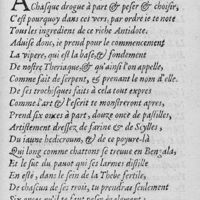 A Chasque drogue à part & peser & choisir,
C'est pourquoy dans ces vers, par ordre ie te note
Tous les ingrediens de ce riche Antidote.
Aduise donc, ie prend pour le commencement
La vipere, qui est la base, & fondement
De nostre Theriaque, & qu'ainsi l'on appelle,
Comme fait de serpent, & prenant le nom d'elle.
De ses trochisques faits à cela tout expres
Comme l'art & l'escrit te monstreront apres,
Prend six onces à part, douze onces de pastilles,
Artistement dressez de farine & de Scylles,
Du iaune hedicroum, & de ce poyure-là
Qui long comme chattons se treuue en Bengala,
Et le suc du pauot qui ses larmes distille
En esté, dans le sein de la Thebe fertile,
De chascun de ses trois, tu prendras seulement
Six onces